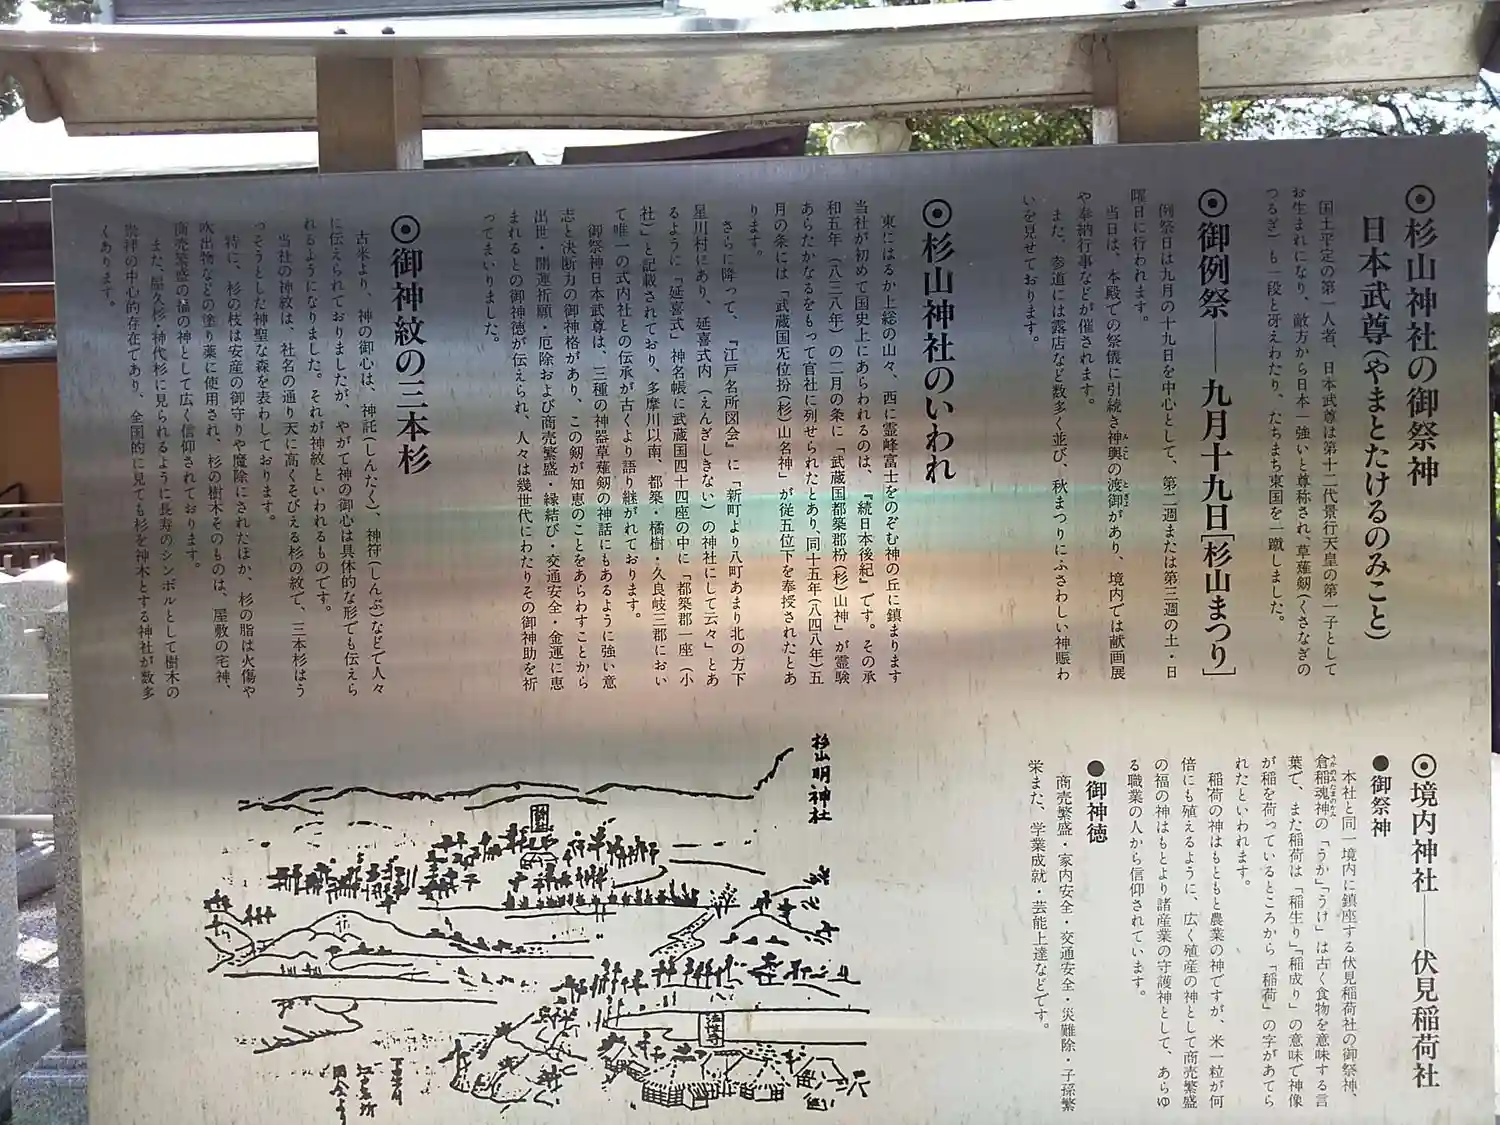 ◉杉山神社の御祭神
日本武尊(やまとたけるのみこと)
国土平定の第一人者、日本武尊は第十二代景行天皇の第一子として
お生まれになり、敵方から日本一強いと尊称され、草薙剱(くさなぎの
つるぎ)も一段と冴えわたり、たちまち東国を一蹴しました。
◉御例祭――九月十九日[杉山まつり]
例祭日は九月の十九日を中心として、第二週または第三週の土・日
曜日に行われます。
当日は、本殿での祭儀に引続き神輿の渡御があり、境内では献画展
や奉納行事などが催されます。
また、参道には露店など数多く並び、秋まつりにふさわしい神賑わ
いを見せております。
◉杉山神社のいわれ
東にはるか上総の山々、西に霊峰富士をのぞむ神の丘に鎮まります
当社が初めて国史上にあらわれるのは、『続日本後紀』です。その承
和五年(八三八年)の二月の条に「武蔵国都築郡枌(杉)山神」が霊験
あらたかなるをもって官社に列せられたとあり、同十五年(八四八年)五
月の条には「武蔵国旡位枌(杉)山名神」が従五位下を奉授されたとあ
ります。
さらに降って、『江戸名所図会』に「新町より八町あまり北の方下
星川村にあり、延喜式内(えんぎしきない)の神社にして云々」とあ
るように『延喜式』神名帳に武蔵国四十四座の中に「都築郡一座(小
社)」と記載されており、多摩川以南、都築・橘樹・久良岐三郡におい
て唯一の式内社との伝承が古くより語り継がれております。
御祭神日本武尊は、三種の神器草薙剱の神話にもあるように強い意
志と決断力の御神格があり、この剱が知恵のことをあらわすことから
出世・開運祈願・厄除および商売繁盛・縁結び・交通安全・金運に恵
まれるとの御神徳が伝えられ、人々は幾世代にわたりその御神助を祈
ってまいりました。
◉御神紋の三本杉
古来より、神の御心は、神託(しんたく)、神符(しんぷ)などで人々
に伝えられておりましたが、やがて神の御心は具体的な形でも伝えら
れるようになりました。それが神紋といわれるものです。
当社の神紋は、社名の通り天に高くそびえる杉の紋で、三本杉はう
っそうとした神聖な森を表わしております。
特に、杉の枝は安産の御守りや魔除にされたほか、杉の脂は火傷や
吹出物などの塗り薬に使用され、杉の樹木そのものは、屋敷の宅神、
商売繁盛の福の神として広く信仰されております。
また、屋久杉・神代杉に見られるように長寿のシンボルとして樹木の
崇拝の中心的存在であり、全国的に見ても杉を神木とする神社が数多
くあります。
◉境内神社――伏見稲荷社
●御祭神
本社と同一境内に鎮座する伏見稲荷社の御祭神、
倉稲魂神の「うか」「うけ」は古く食物を意味する言
葉で、また稲荷は「稲生り」「稲成り」の意味で神像
が稲を荷っているところから「稲荷」の字があてら
れたといわれます。
稲荷の神はもともと農業の神ですが、米一粒が何
倍にも殖えるように、広く殖産の神として商売繁盛
の福の神はもとより諸産業の守護神として、あらゆ
る職業の人から信仰されています。
●御神徳
商売繁盛・家内安全・交通安全・災難除・子孫繁
栄また、学業成就・芸能上達などです。
杉山明神社